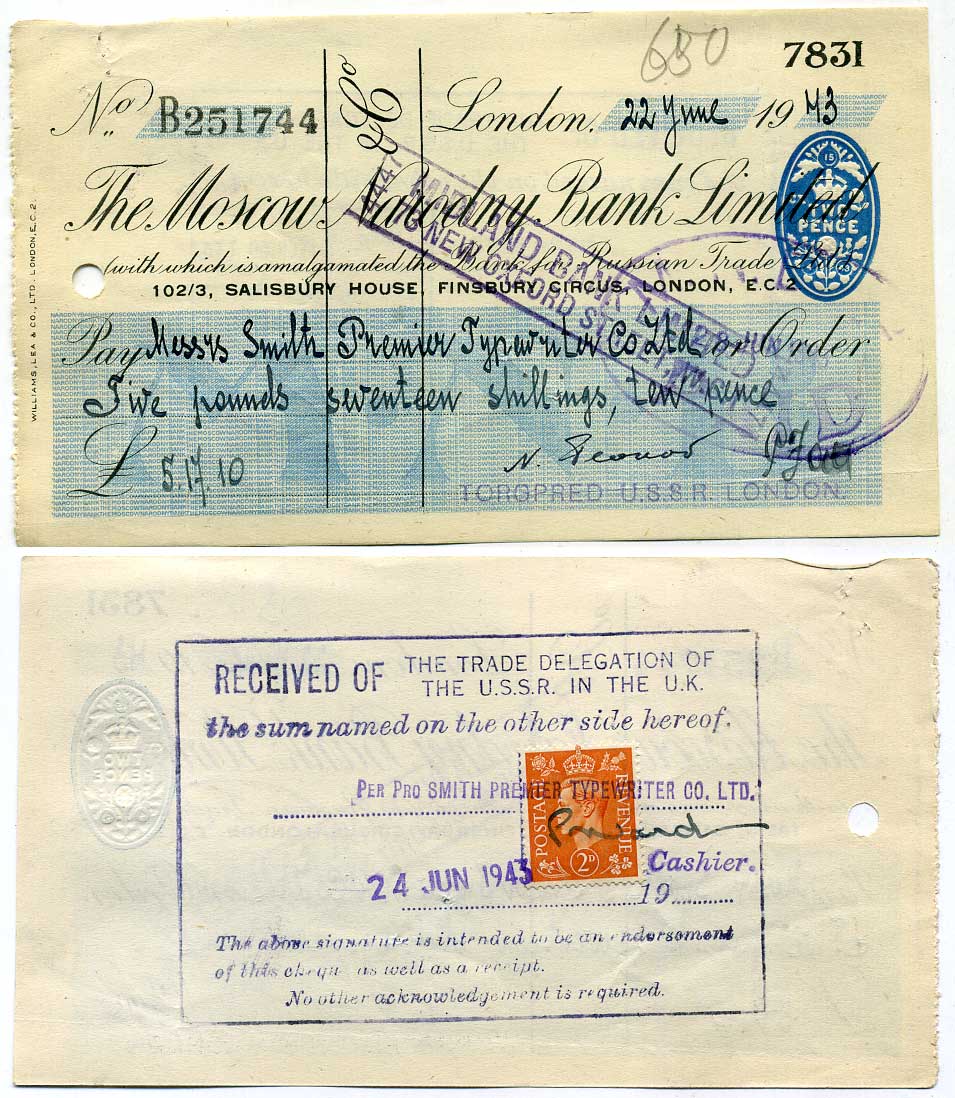 680
7831
No. B251744
& Co
London, 22 June 1943
The Moscow Narodny Bank Limited
(with which is amalgamated the Bank for Russian Trade Ltd.)
102/3, SALISBURY HOUSE, FINSBURY CIRCUS, LONDON, E.C.2
TWO
PENCE
MIDLAND BANK
NEW OXFORD ST.
Pay Messrs Smith Premier Typewriter Co Ltd or Order
Five pounds seventeen shillings, ten pence
£ 5.17.10
TORGPRED U.S.S.R. LONDON.
WILLIAMS, LEA & CO., LTD. LONDON, E.C.2.
RECEIVED OF THE TRADE DELEGATION OF
THE U.S.S.R. IN THE U.K.
the sum named on the other side hereof.
PER PRO SMITH PREMIER TYPEWRITER CO. LTD.
POSTAGE REVENUE
2D
Cashier.
24 JUN 1943 19
The above signature is intended to be an endorsement
of this cheque as well as a receipt.
No other acknowledgement is required.